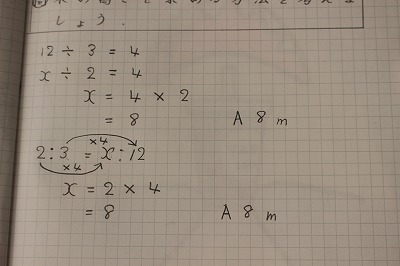 しょう.
12 ÷ 3 = 4
x ÷ 2 = 4
x = 4 × 2
= 8 A 8 m
×4
2:3 = x:12
×4
x = 2 × 4
= 8 A 8 m